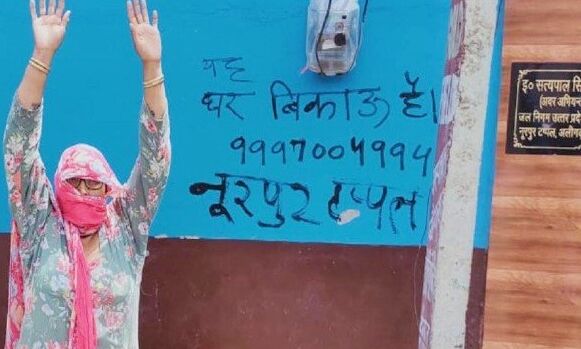 यह
घर बिकाऊ है।
9997004994
नूरपुर टप्पल
इ० सत्यपाल सि
(अवर अभिय
जल निगम उत्तर प्रदे
नूरपुर टप्पल, अलीग